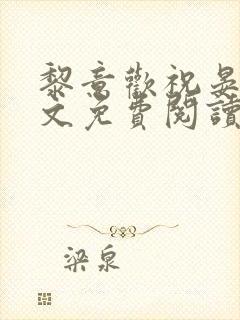 黎意歡祝晏
文免費閱讀
梁泉